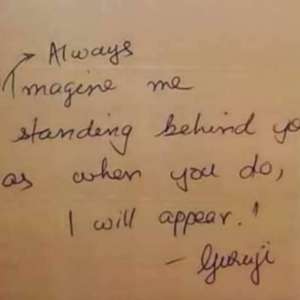 Always
Imagine me
standing behind yo
as when you do,
I will appear.!
- Guruji